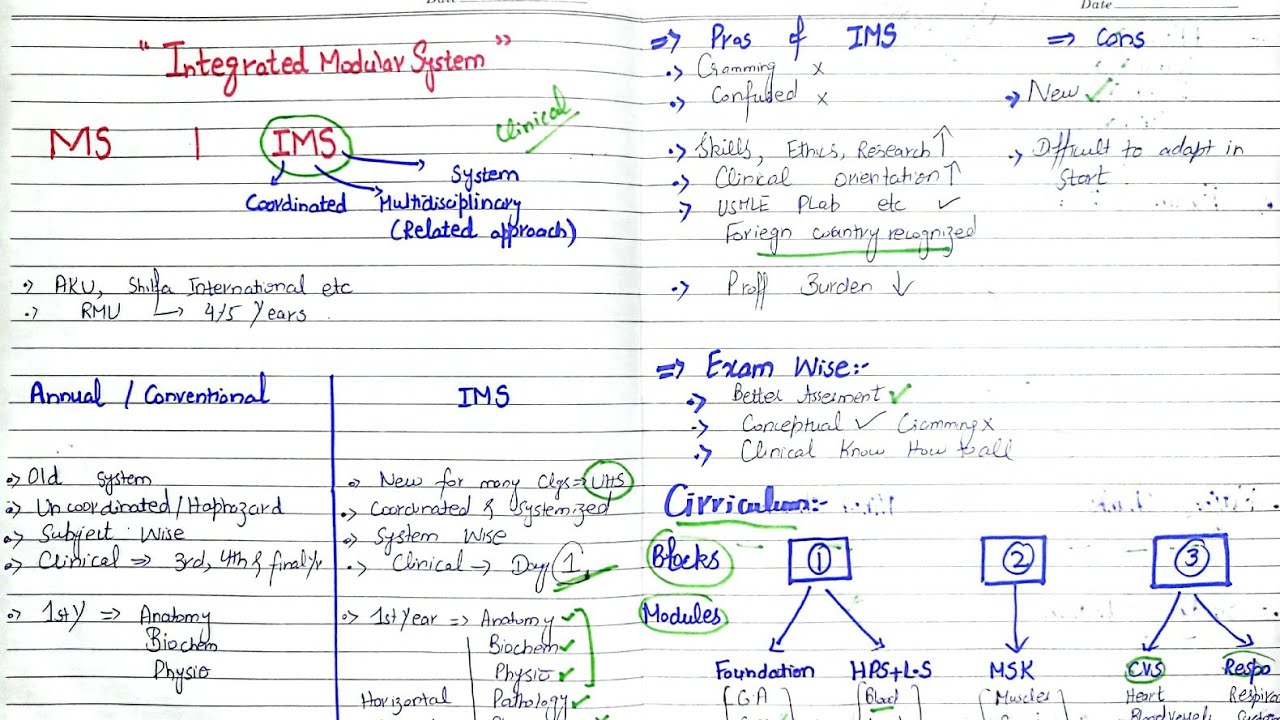 Date
"Integrated Modular System"
MS | IMS
Clinical
System
Coordinated Multidisciplinary
(Related approach)
AKU, Shifa International etc
RMU → 4/5 Years
Annual / Conventional
Old System
Uncoordinated/Haphazard
Subject Wise
Clinical ⇒ 3rd, 4th & final/Y
1st Y ⇒ Anatomy
Biochem
Physio
IMS
New for many Clgs ⇒ UHS
Coordinated & Systemized
System Wise
Clinical → Day 1
1st Year ⇒ Anatomy ✓
Biochem ✓
Physio ✓
Horizontal Pathology ✓
Date
⇒ Pros of IMS
Cramming x
Confused x
Skills, Ethics, Research ↑
Clinical orientation ↑
USMLE PLab etc ✓
Foriegn country recognized
Proff Burden ↓
⇒ Cons
New ✓
Difficult to adapt in
Start
⇒ Exam Wise:-
Better Assesment ✓
Conceptual ✓ Cramming x
Clinical Know How to all
Cirriculum:-
Blocks 1 2 3
Modules
Foundation HPS+L·S MSK CVS Respo
G.A Blood Muscles Heart
Blood vessels